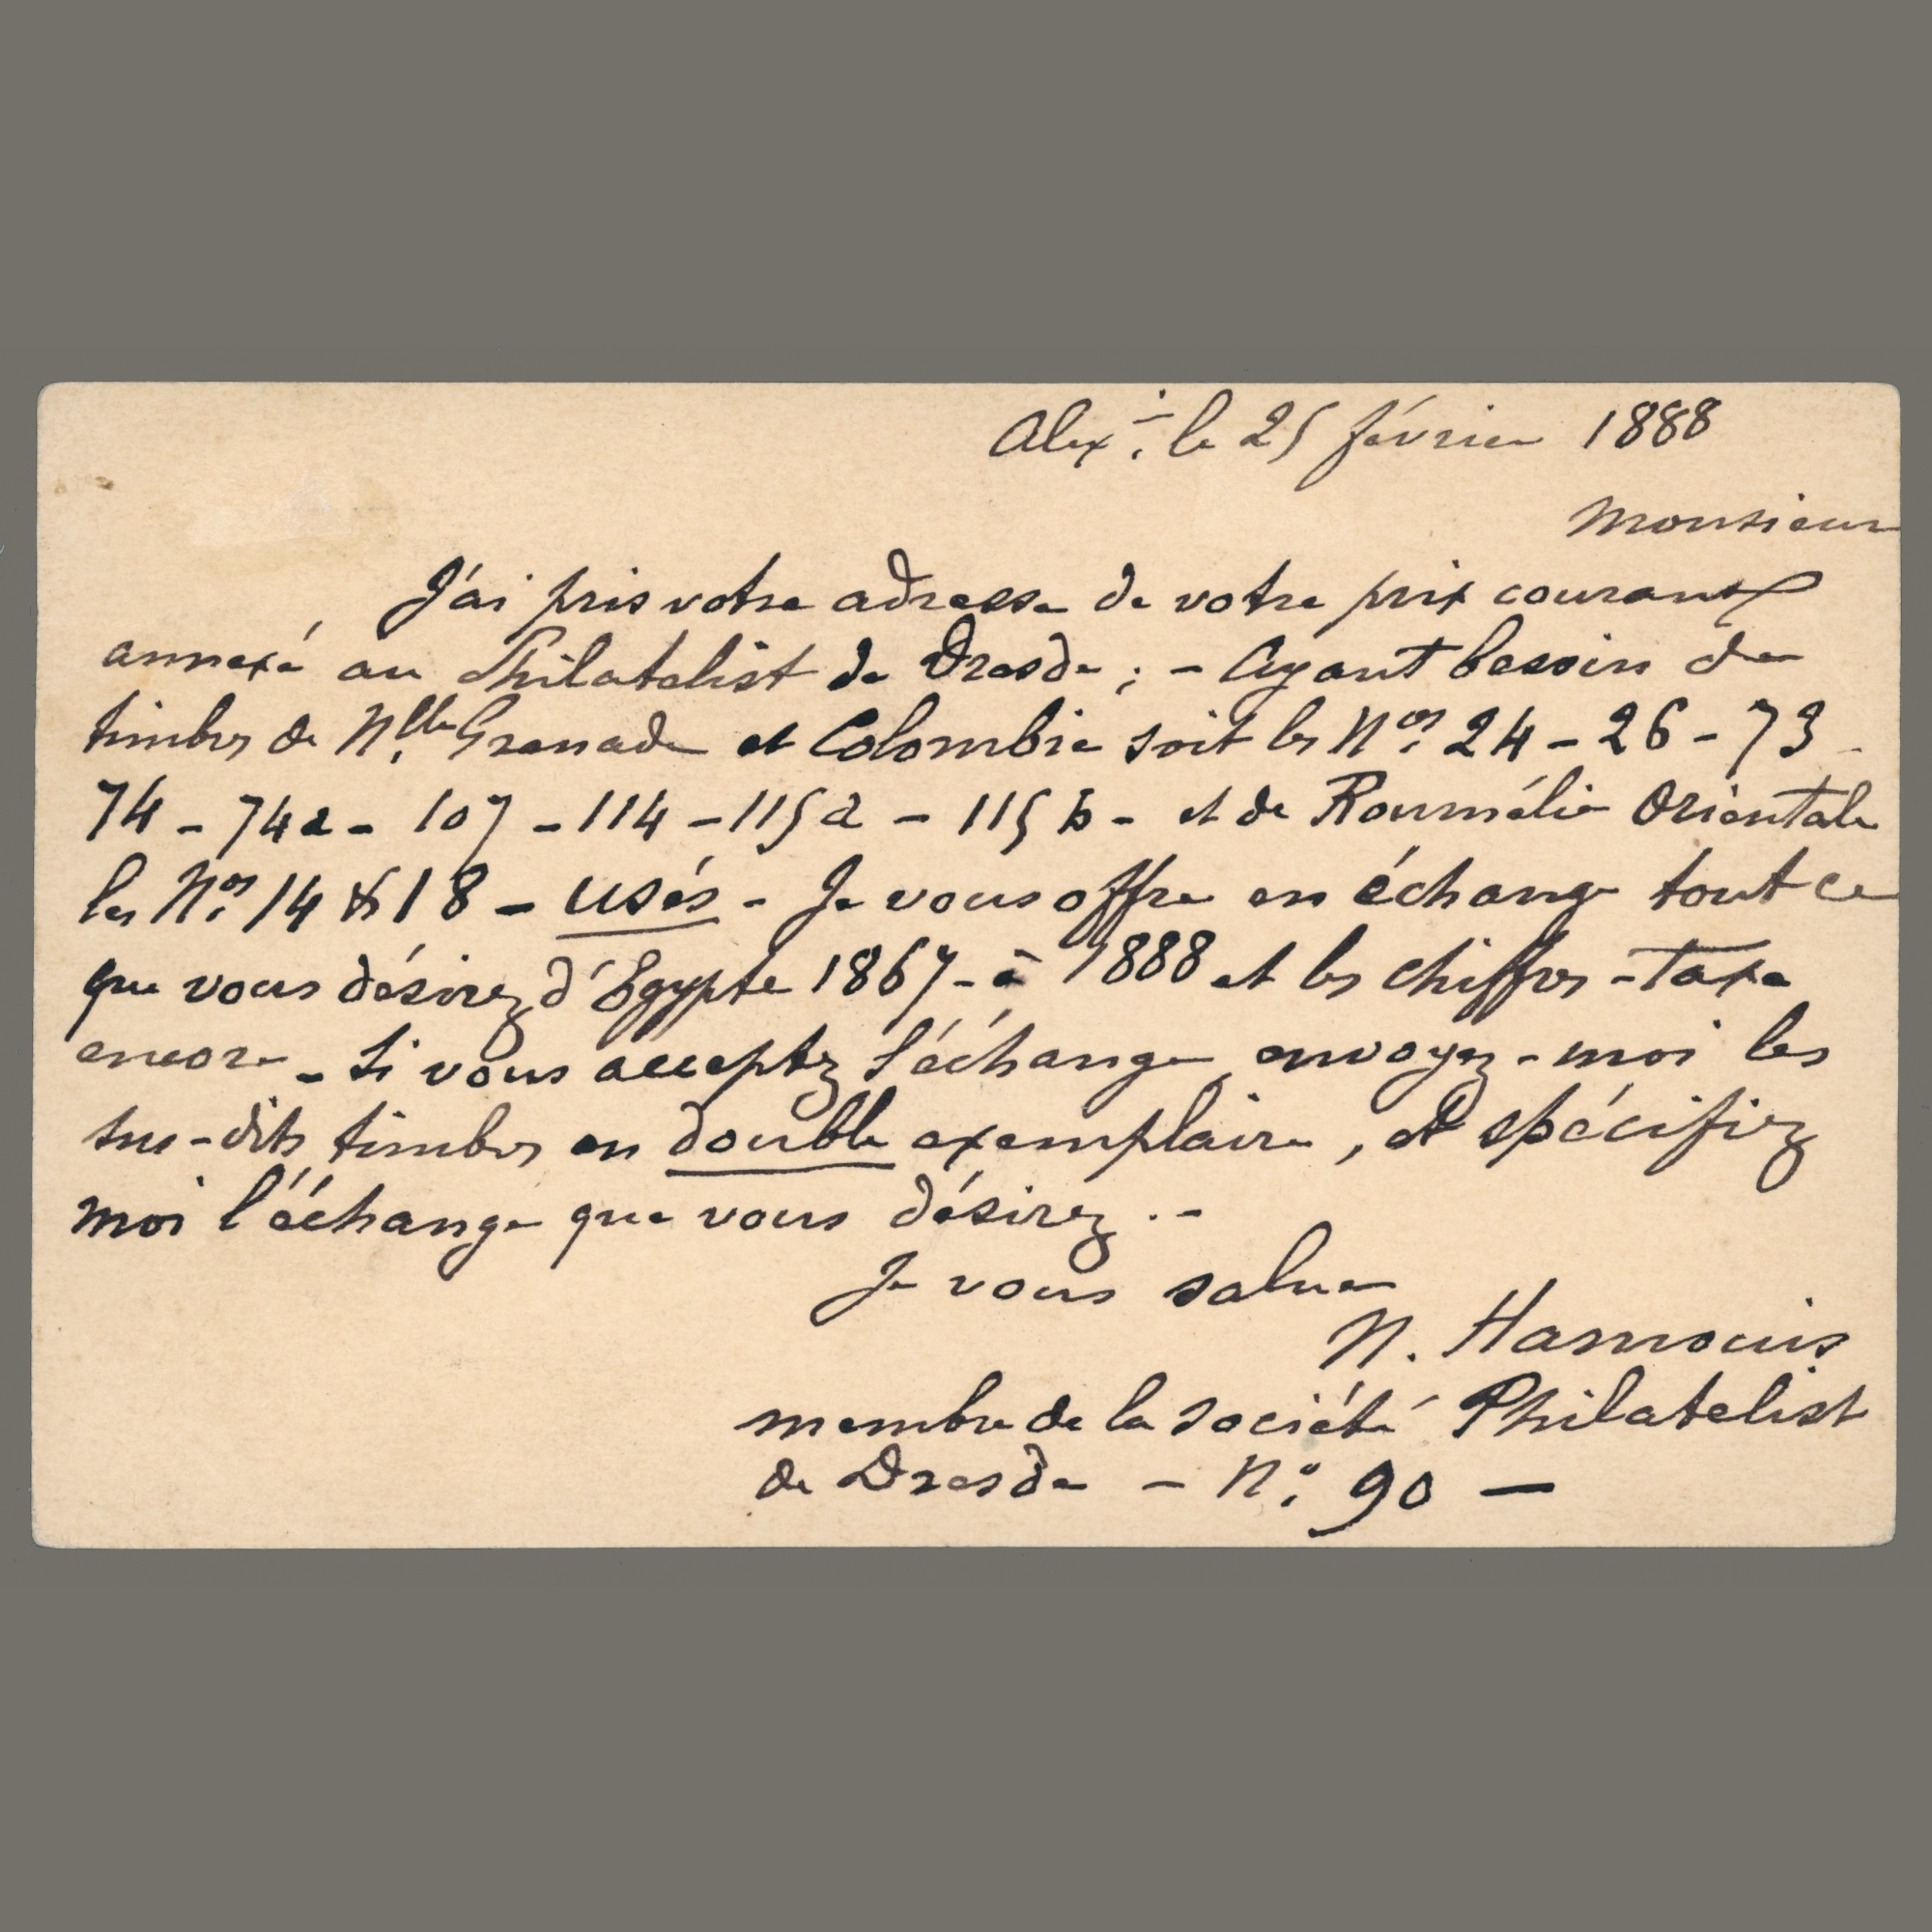 Alex.ie le 25 février 1888
Monsieur
J'ai pris votre adresse de votre prix courant
annexé au Philatelist de Dresde ; - Ayant besoin de
timbres de N.lle Grenade et Colombie soit les Nos 24 - 26 - 73 -
74 - 74a - 107 - 114 - 115a - 115b - et de Roumélie Orientale
les Nos 14 & 18 - usés - Je vous offre en échange tout ce
que vous désirez d'Egypte 1867 - à 1888 et les chiffres - Taxe
encore - Si vous acceptez l'échange envoyez - moi les
sus - dits timbres en double exemplaire, et spécifiez
moi l'échange que vous désirez . -
Je vous salue
N.
membre de la société Philatelist
de Dresde - No 90 -